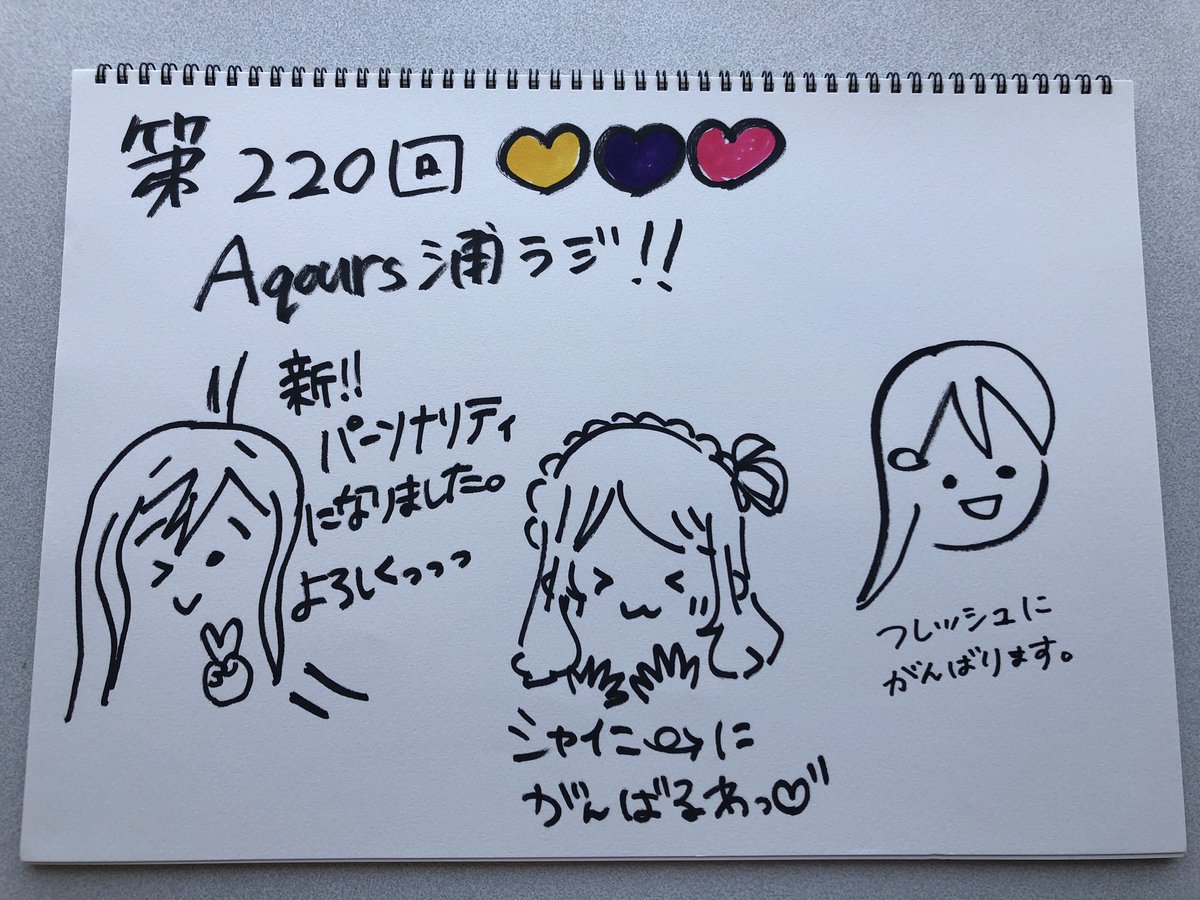 第220回
Aqours浦ラジ!!
新!!
パーソナリティ
になりました。
よろしくっっっ
シャイニーに
がんばるわっ♡
フレッシュに
がんばります。